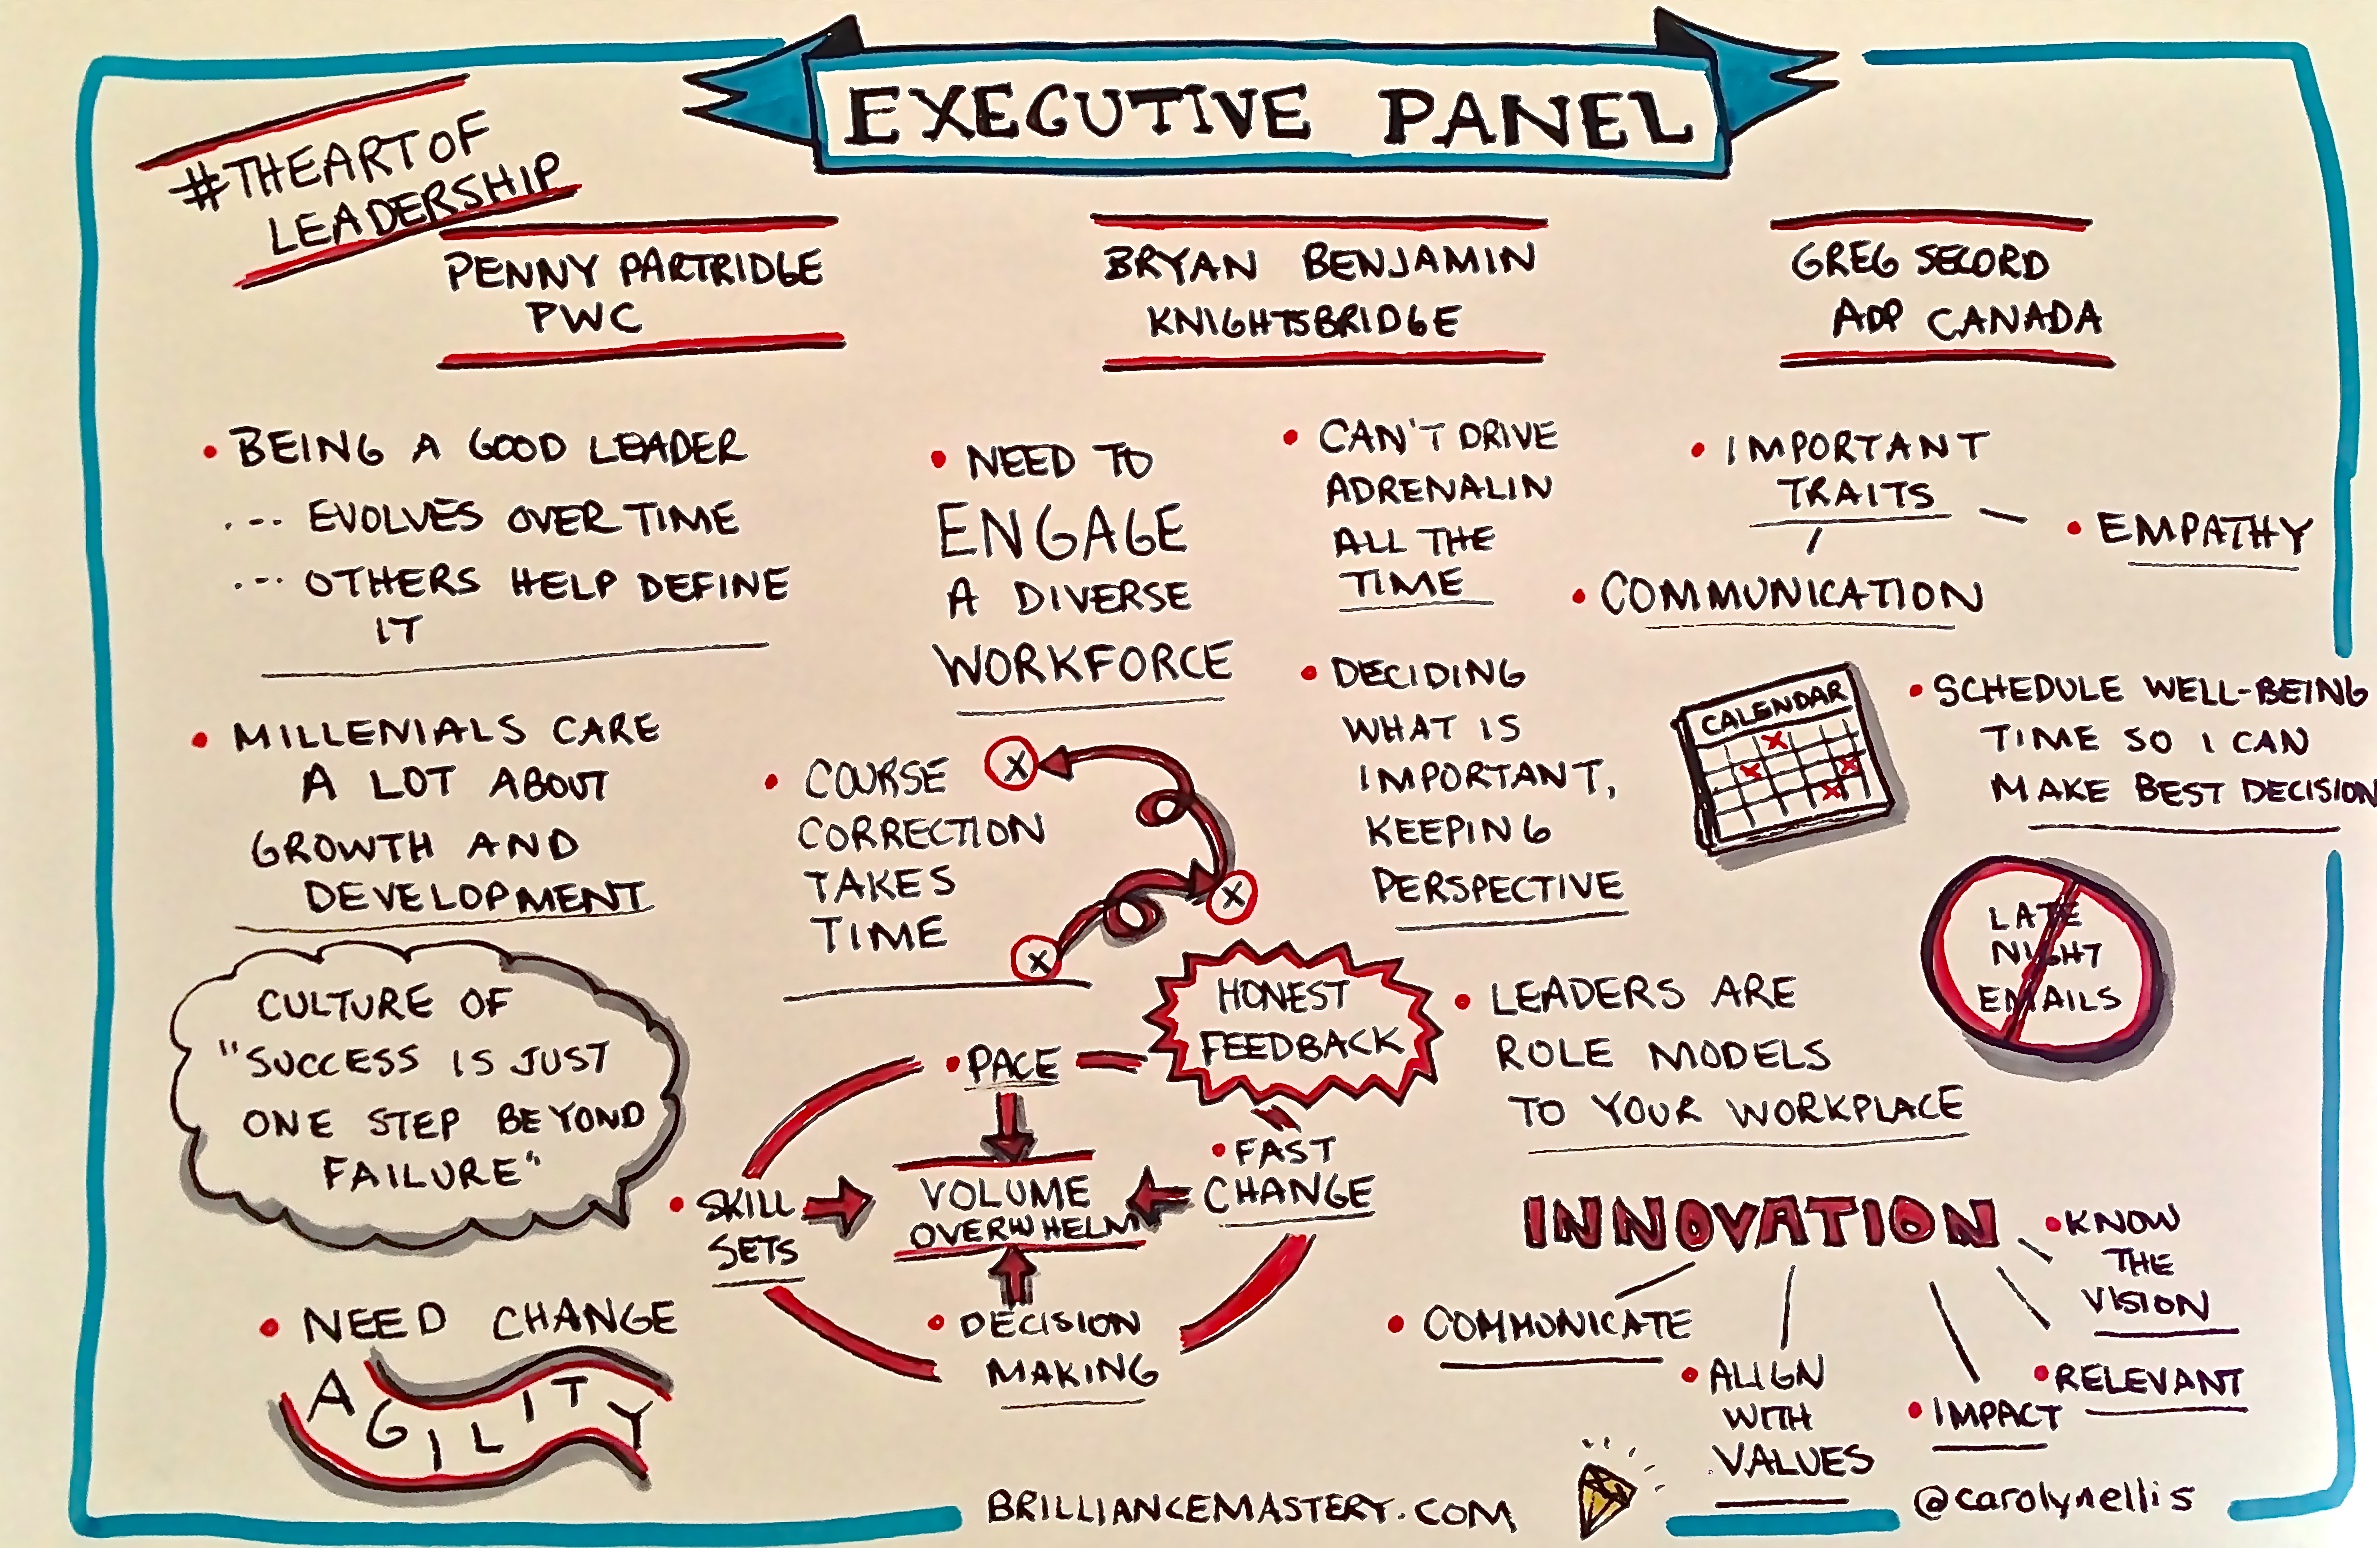 EXECUTIVE PANEL
#THEARTOF
LEADERSHIP
PENNY PARTRIDGE
PWC
BRYAN BENJAMIN
KNIGHTSBRIDGE
GREG SECORD
ADP CANADA
• BEING A GOOD LEADER
... EVOLVES OVER TIME
... OTHERS HELP DEFINE
IT
• MILLENIALS CARE
A LOT ABOUT
GROWTH AND
DEVELOPMENT
CULTURE OF
"SUCCESS IS JUST
ONE STEP BEYOND
FAILURE"
• NEED CHANGE
AGILITY
• NEED TO
ENGAGE
A DIVERSE
WORKFORCE
• COURSE
CORRECTION
TAKES
TIME
X
X
X
• CAN'T DRIVE
ADRENALIN
ALL THE
TIME
• DECIDING
WHAT IS
IMPORTANT,
KEEPING
PERSPECTIVE
HONEST
FEEDBACK
• PACE
• FAST
CHANGE
• SKILL
SETS
VOLUME
OVERWHELM
• DECISION
MAKING
• IMPORTANT
TRAITS
• EMPATHY
• COMMUNICATION
CALENDAR
X
X X
X
• SCHEDULE WELL-BEING
TIME SO I CAN
MAKE BEST DECISION
LATE
NIGHT
EMAILS
• LEADERS ARE
ROLE MODELS
TO YOUR WORKPLACE
INNOVATION
• COMMUNICATE
• ALIGN
WITH
VALUES
• IMPACT
• RELEVANT
• KNOW
THE
VISION
BRILLIANCEMASTERY.COM
@carolynellis